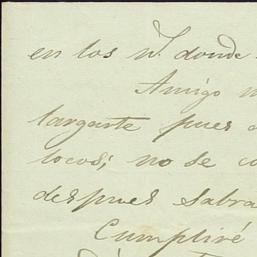 en los n.s donde
Amigo
largarte pues
locos; no se
despues sabra
Cumpliré